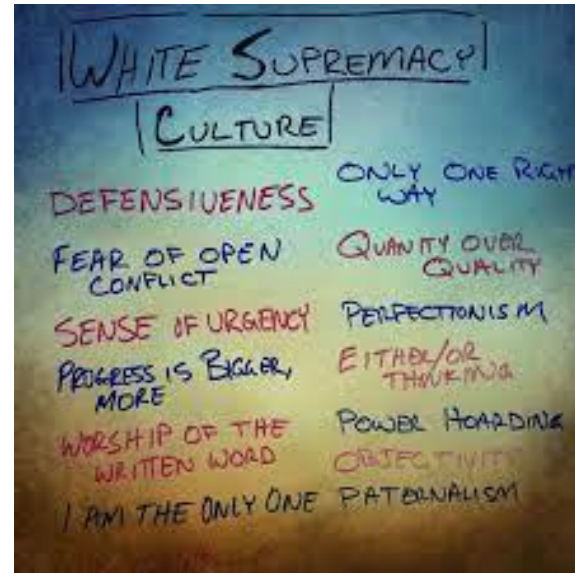 WHITE SUPREMACY
CULTURE
DEFENSIVENESS
FEAR OF OPEN
CONFLICT
SENSE OF URGENCY
PROGRESS IS BIGGER,
MORE
WORSHIP OF THE
WRITTEN WORD
I AM THE ONLY ONE
ONLY ONE RIGHT
WAY
QUANITY OVER
QUALITY
PERFECTIONISM
EITHER/OR
THINKING
POWER HOARDING
OBJECTIVITY
PATERNALISM